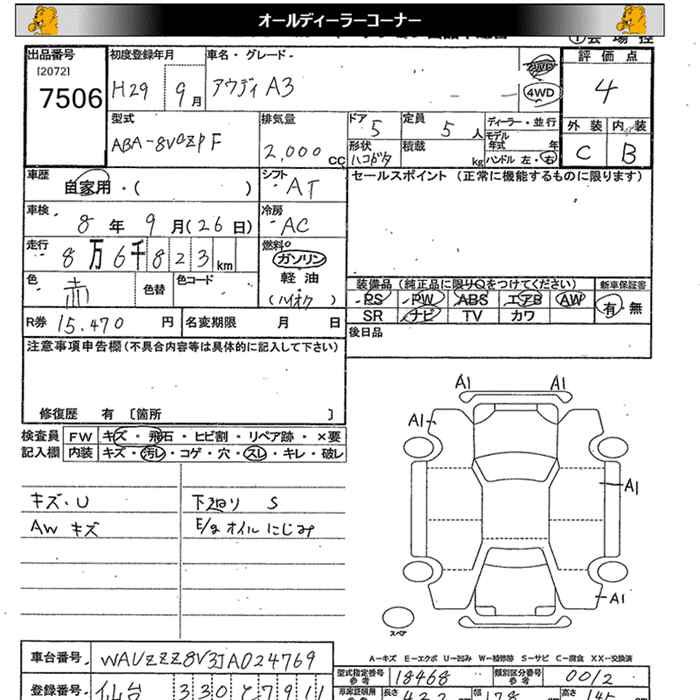 オールディーラーコーナー
出品番号
[2072]
7506
初度登録年月
H29 9月
車名・グレード
アウディ A3
4WD
評価点
4
外装 内装
C B
型式
ABA-8V0ZPF
排気量
2,000 cc
ドア 5
定員 5 人
形状 ハコガタ
積載 kg
ディーラー・並行
モデル年式 年
ハンドル 左・右
車歴
自家用・( )
シフト
AT
セールスポイント (正常に機能するものに限ります)
車検
8年9月(26日)
冷房
AC
走行
8万6千823km
燃料
ガソリン
軽油
(ハイオク)
色
赤
色替
色コード
装備品 (純正品に限り○をつけてください)
新車保証書
PS PW ABS エアB AW
SR ナビ TV カワ
有・無
R券 15,470 円
名変期限 月 日
後日品
注意事項申告欄(不具合内容等は具体的に記入して下さい)
修復歴 有 〔箇所 〕
検査員記入欄
FW キズ・飛石・ヒビ割・リペア跡・×要
内装 キズ・汚レ・コゲ・穴・スレ・キレ・破レ
キズ・U
AW キズ
下廻り S
E/g オイルにじみ
A1
A1
A1
A1
A1
スペア
車台番号 WAUZZZ8V3JA024769
A-キズ E-エクボ U-凹み W-補修跡 S-サビ C-腐食 XX-交換済
型式指定番号 参考 18468
類別区分番号 参考 0012
登録番号 仙台 330
長さ
幅 178
高さ 145